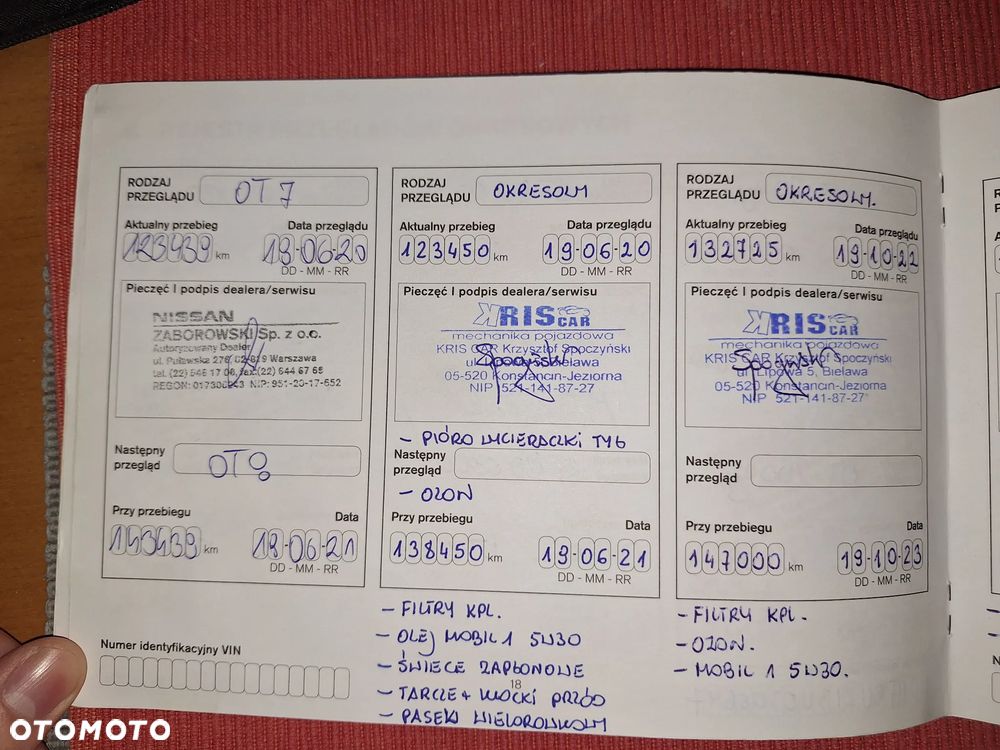 RODZAJ
PRZEGLĄDU OT 7
Aktualny przebieg Data przeglądu
123439 km 18-06-20
DD - MM - RR
Pieczęć I podpis dealera/serwisu
NISSAN
ZABOROWSKI Sp. z o.o.
Autoryzowany Dealer
ul. Puławska 02-819 Warszawa
Następny
przegląd OT8
Przy przebiegu Data
143439 km 18-06-21
DD - MM - RR
Numer identyfikacyjny VIN
RODZAJ
PRZEGLĄDU OKRESOWY
Aktualny przebieg Data przeglądu
123450 km 19-06-20
DD - MM - RR
Pieczęć I podpis dealera/serwisu
KRIS CAR
mechanika pojazdowa
KRIS CAR Krzysztof Spoczyński
ul. Lipowa 5, Bielawa
05-520 Konstancin-Jeziorna
NIP 521-141-87-27
- PIÓRO WYCIERACZKI TYŁ
Następny
przegląd
- OZON
Przy przebiegu Data
138450 km 19-06-21
DD - MM - RR
- FILTRY KPL.
- OLEJ MOBIL 1 5W30
- ŚWIECE ZAPŁONOWE
- TARCZE + KLOCKI PRZÓD
- PASEK WIELOROWKOWY
18
RODZAJ
PRZEGLĄDU OKRESOWY.
Aktualny przebieg Data przeglądu
132725 km 19-10-22
DD - MM - RR
Pieczęć I podpis dealera/serwisu
KRIS CAR
mechanika pojazdowa
KRIS CAR Krzysztof Spoczyński
ul. Lipowa 5, Bielawa
05-520 Konstancin-Jeziorna
NIP 521-141-87-27
Następny
przegląd
Przy przebiegu Data
147000 km 19-10-23
DD - MM - RR
- FILTRY KPL.
- OZON.
- MOBIL 1 5W30.
OTOMOTO